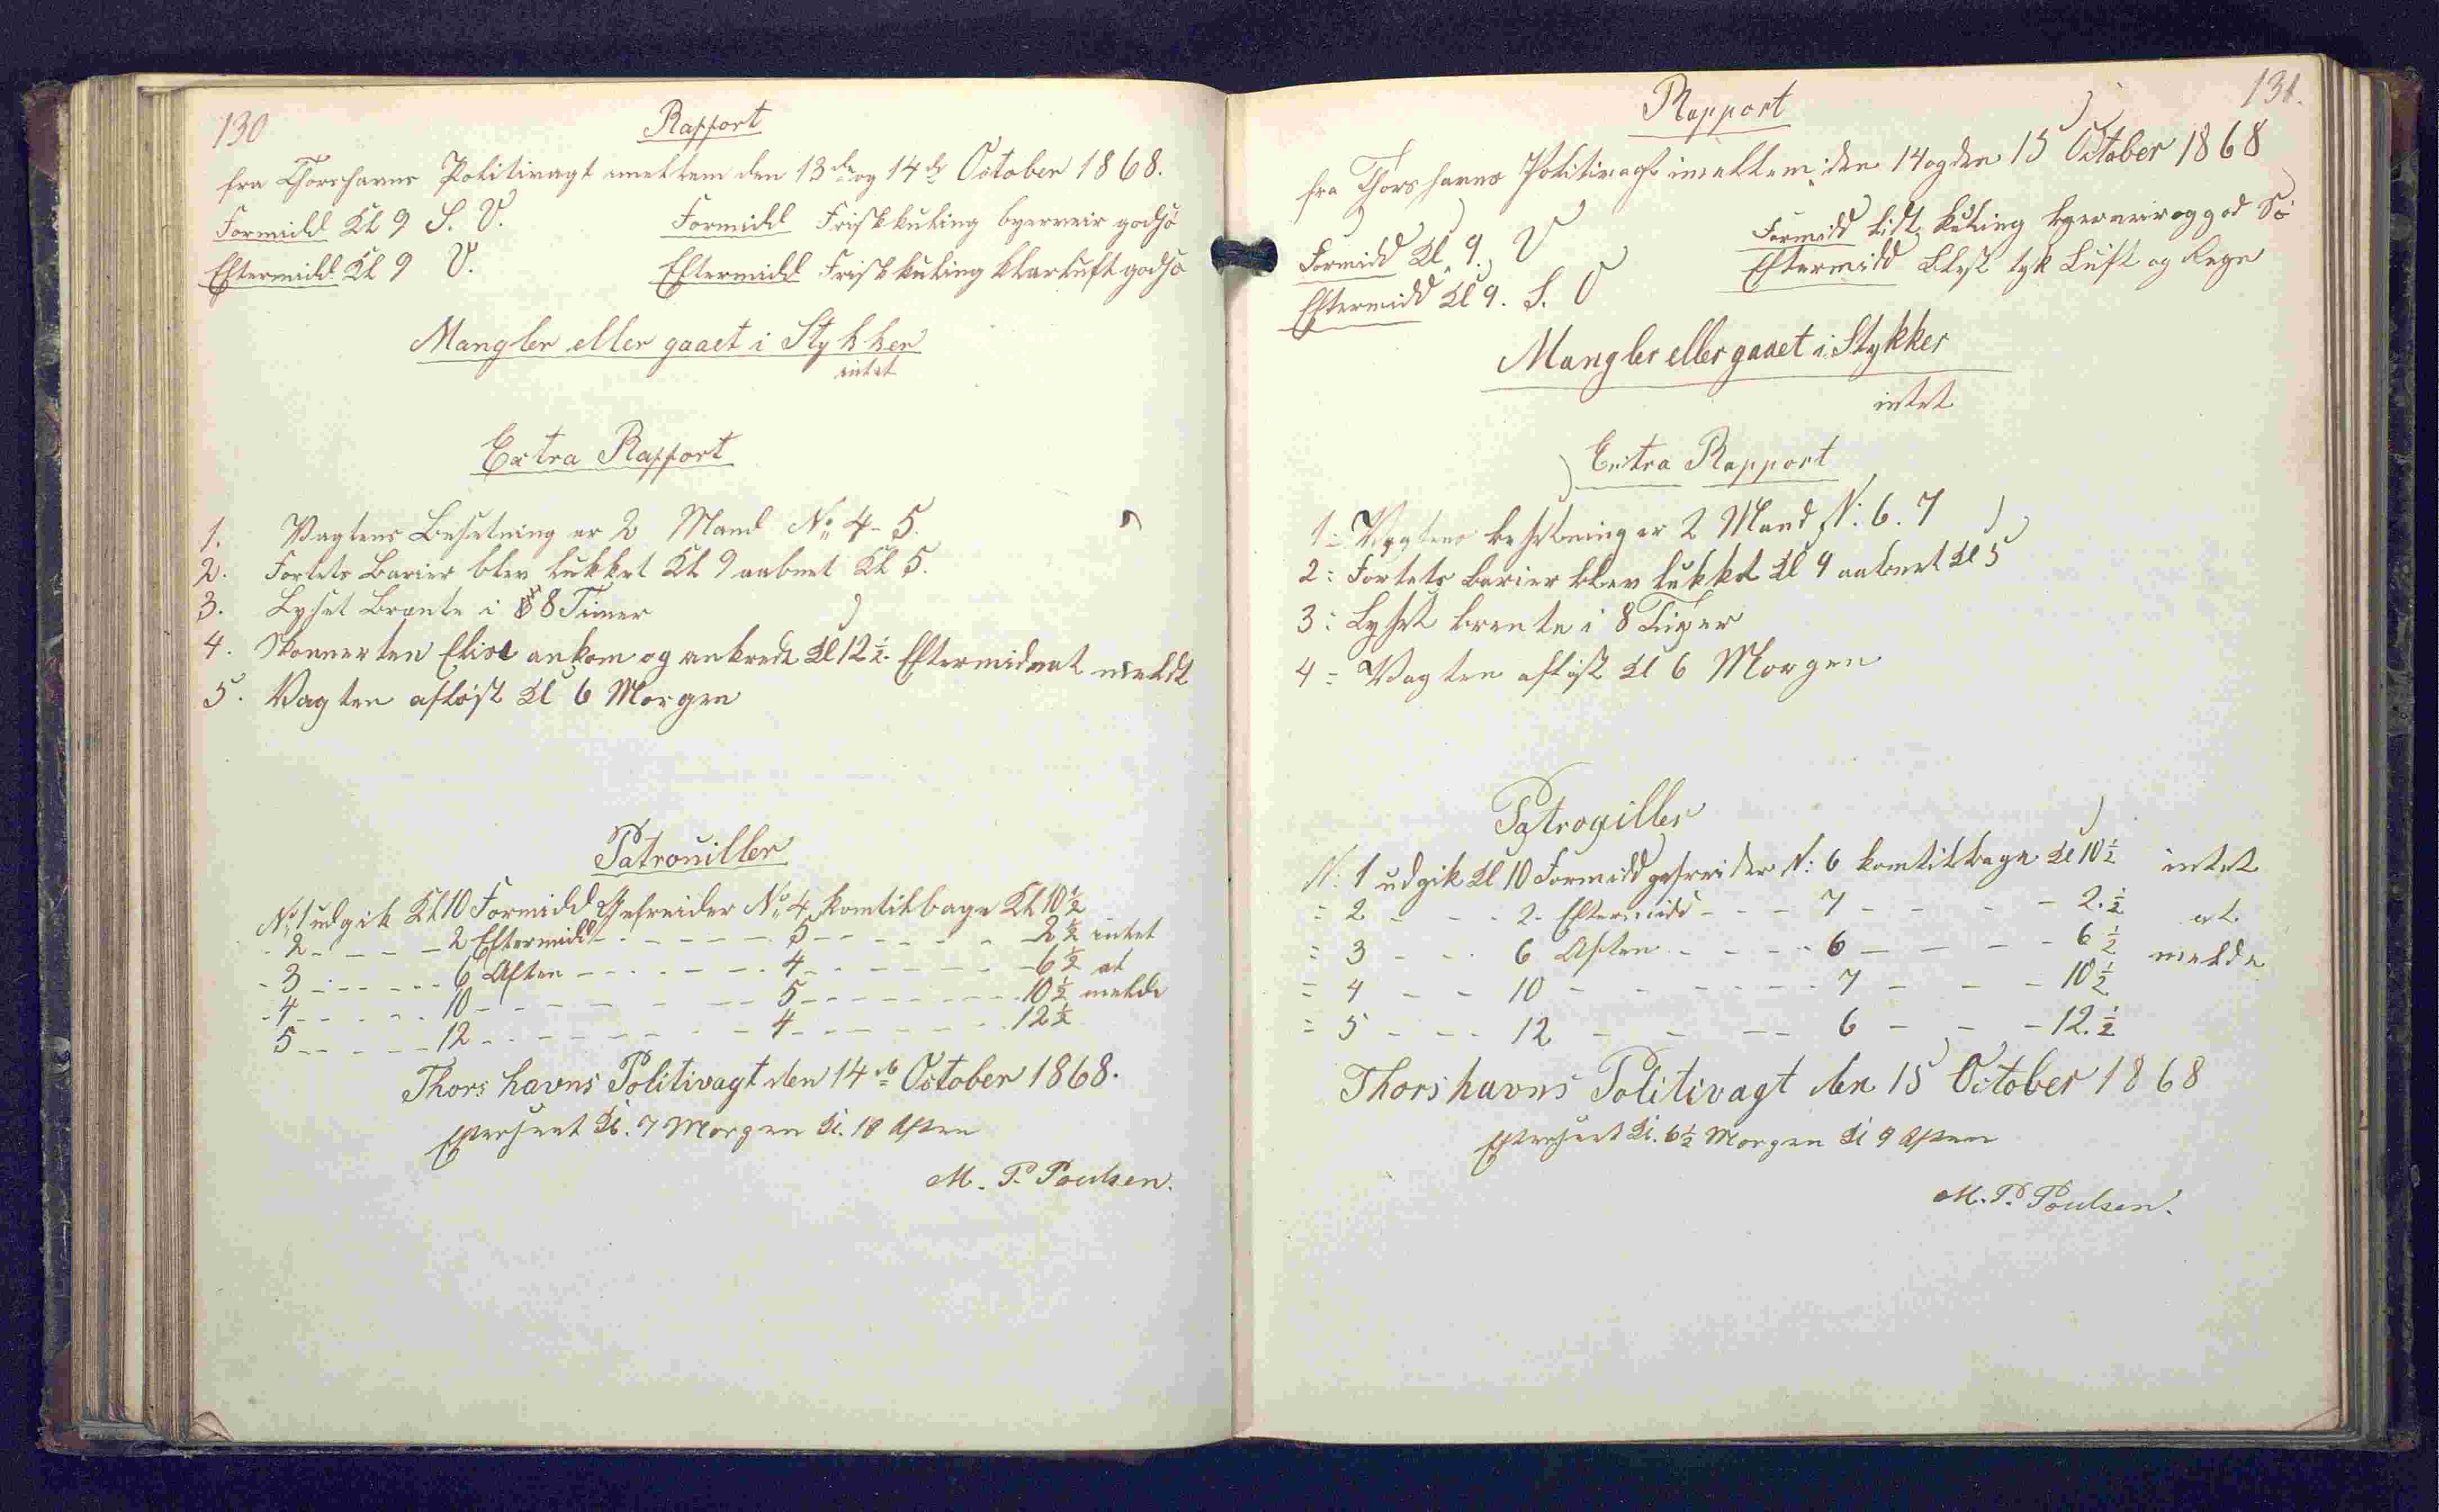 130
Rapport
fra Thorshavns Politivagt imellem den 13de og 14de October 1868.
Formidd Kl 9 S. V. Formidd Frisk kuling byerveir godsø
Eftermidd Kl 9 V. Eftermidd Frisk kuling klarluft godsø
Mangler eller gaaet i Stykker
intet
Extra Rapport
1. Vagtens Besetning er 2 Mand No 4-5.
2. Fortets Barier blev lukket Kl 9 aabnet Kl 5.
3. Lyset Brænte i 8 Timer
4. Skonnerten Elise ankom og ankrede Kl 12 1/2 Eftermidnat meldt
5. Vagten afløst Kl 6 Morgen
Patrouiller
No 1 udgik Kl 10 Formidd Gefreider No 4 komtilbage Kl 10 1/2
- 2 - - - - 2 Eftermidd - - - - - 5 - - - - - - 2 1/2 intet
- 3 - - - - 6 Aften - - - - - - 4 - - - - - - 6 1/2 at
- 4 - - - - 10 - - - - - - - 5 - - - - - - 10 1/2 melde
5 - - - - 12 - - - - - - - 4 - - - - - - 12 1/2
Thorshavns Politivagt den 14de October 1868.
Efterseet Kl. 7 Morgen Kl. 10 Aften
M. P. Poulsen.
131.
Rapport
fra Thorshavns Politivagt imellem den 14 og den 15 October 1868
Formidd Kl 9. V Formidd lidt kuling byerveir og god Sø
Eftermidd Kl 9. S. V Eftermidd Blest tyk Luft og Regn
Mangler eller gaaet i Stykker
intet
Extra Rapport
1 = Vagtens besetning er 2 Mand N: 6. 7
2 : Fortets barier blev lukket Kl 9 aabnet Kl 5
3 : Lyset brente i 8 Timer
4 = Vagten afløst Kl 6 Morgen
Patrogiller
N: 1 udgik Kl 10 Formidd gefreider N: 6 komtilbage Kl 10 1/2 intet
= 2 - - - 2 - Eftermidd - - - 7 - - - - 2. 1/2 at
: 3 - - - 6 Aften - - - - 6 - - - - 6 1/2 melde
= 4 - - 10 - - - - - - 7 - - - 10 1/2
= 5 - - - 12 - - - - 6 - - - 12. 1/2
Thorshavns Politivagt den 15 October 1868
Efterseet Kl. 6 1/2 Morgen Kl 9 Aften
M. P. Poulsen.